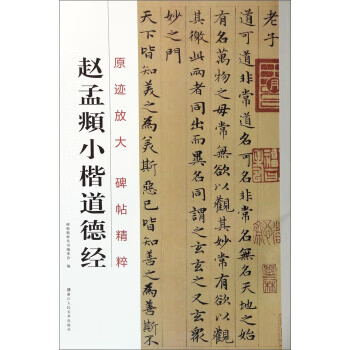 老子
道可道非常道名可名非常名无名天地之始
有名萬物之母常無欲以觀其妙常有欲以觀
其徼此兩者同出而異名同謂之玄玄之又玄衆
妙之門
天下皆知美之為美斯惡已皆知善之為善斯不
原迹放大 碑帖精粹
赵孟頫小楷道德经
浙江人民美术出版社